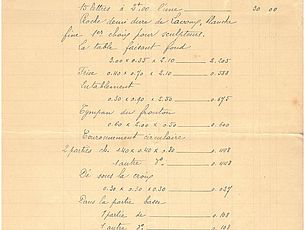 15 lettres à 2f00 l'une 30 00
Roche demi dure de Lavoux, blanche
fine 1er choix pour sculpture.
La table faisant fond
3.00 x 0.35 x 2.10 2.205
Frise 0.40 x 0.70 x 2.10 0.588
Entablement
0.30 x 0.90 x 2.50 0.675
Tympan du fronton
0.60 x 2.00 x 0.50 0.600
Couronnement circulaire
2 parties de 1.40 x 0.40 x 0.80 0.448
1 autre do 0.448
Dé sous la croix
0.30 x 0.30 x 0.30 0.027
Dans la partie basse
1 partie de 0.108
1 autre do 0.108